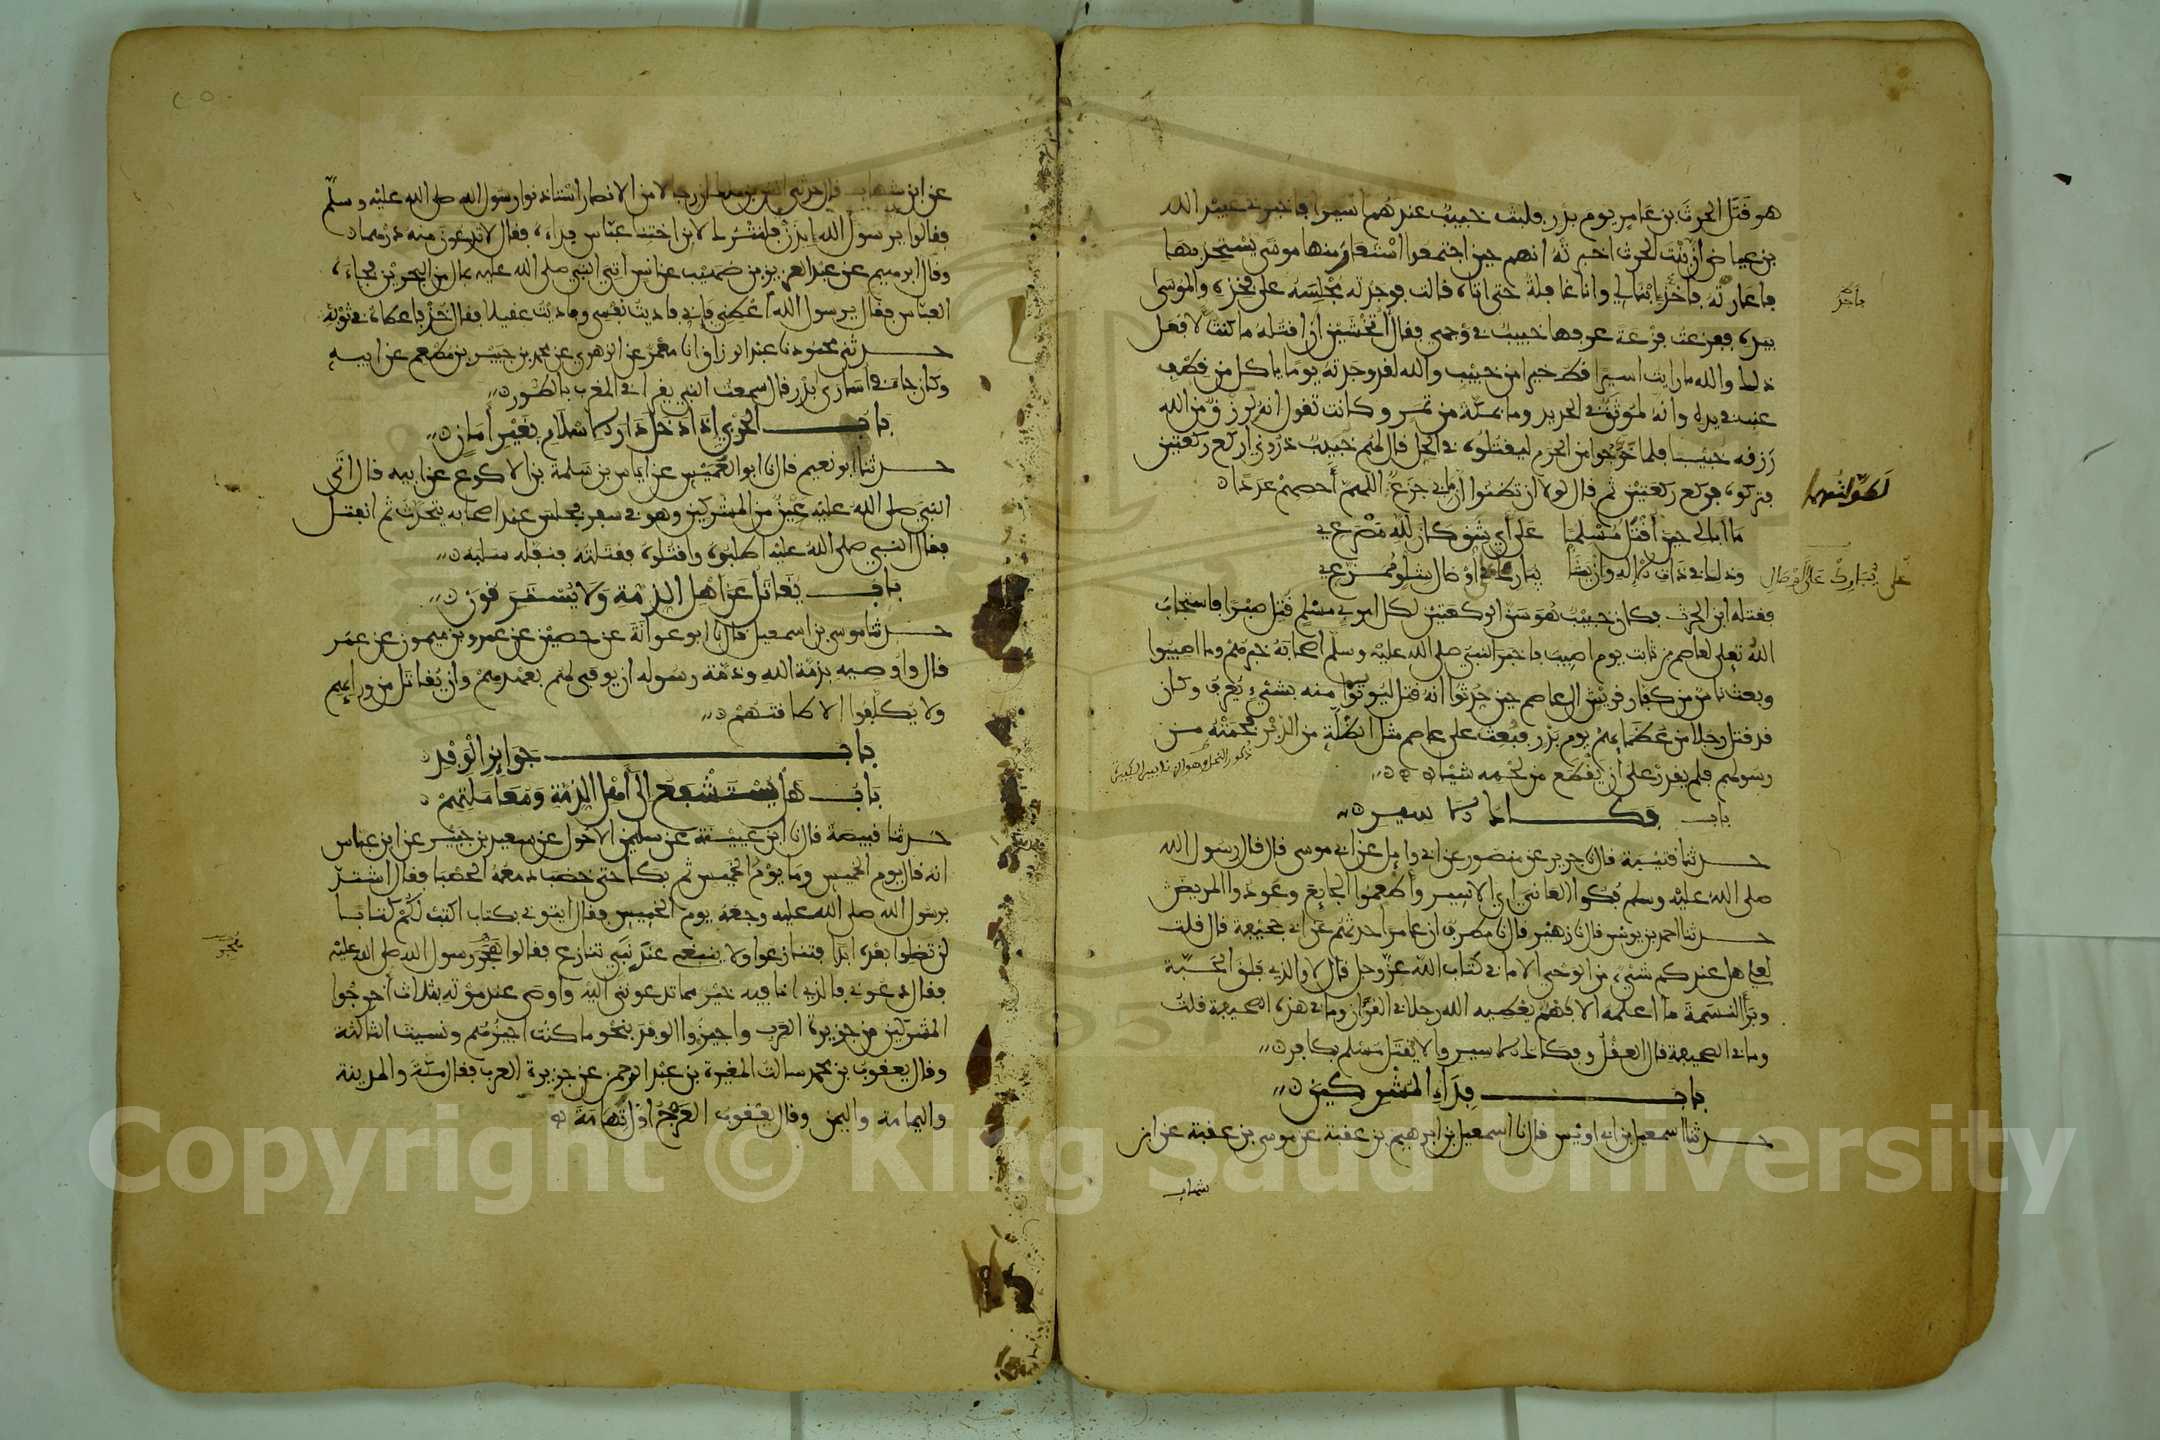 هو قتل الحرث بن عامر يوم بدر فلبث خبيب عندهم اسيرا فاخبرني عبيد الله
بن عياض أن بنت الحرث اخبرته انهم حين اجتمعوا استعار منها موسى يستحد بها
فاعارته فأخذ ابنا لي وانا غافلة حتى اتاه قالت فوجدته مجلسه على فخذه والموسى
بيده ففزعت فزعة عرفها خبيب في وجهي فقال أتخشين أن اقتله ما كنت لافعل
ذلك والله ما رايت اسيرا قط خيرا من خبيب والله لقد وجدته يوما ياكل من قطف
عنب في يده وانه لموثق في الحديد وما بمكة من ثمر وكانت تقول انه لرزق من الله
رزقه خبيبا فلما خرجوا من الحرم ليقتلوه في الحل قال لهم خبيب ذروني اركع ركعتين
فتركوه فركع ركعتين ثم قال لولا ان تظنوا ان ما بي جزع اللهم أحصهم عددا
ما أبالي حين أقتل مسلما على أي شق كان لله مصرعي
وذلك في ذات الإله وإن يشأ يبارك في أوصال شلو ممزع
فقتله ابن الحرث فكان خبيب هو سن الركعتين لكل امرئ مسلم قتل صبرا فاستجاب
الله تعلى لعاصم بن ثابت يوم اصيب فاخبر النبي صلى الله عليه وسلم أصحابه خبرهم وما اصيبوا
وبعث ناس من كفار قريش الى عاصم حين حدثوا انه قتل ليوتوا منه بشيء يعرف وكان
قد قتل رجلا من عظمائهم يوم بدر فبعث على عاصم مثل الظلة من الدبر فحمته من
رسولهم فلم يقدر على أن يقطع من لحمه شيئا
باب فكاك الاسير
حدثنا قتيبة قال نا جرير عن منصور عن ابي وايل عن ابي موسى قال قال رسول الله
صلى الله عليه وسلم فكوا العاني اي الاسير وأطعموا الجايع وعودوا المريض
حدثنا احمد بن يونس قال نا زهير قال نا مطرف ان عامرا حدثهم عن ابي جحيفة قال قلت
لعلي هل عندكم شيء من الوحي الا ما في كتاب الله عز وجل قال لا والذي فلق الحبة
وبرأ النسمة ما اعلمه الا فهم يعطيه الله رجلا في القرآن وما في هذه الصحيفة قلت
وما في الصحيفة قال العقل وفكاك الاسير والا يقتل مسلم بكافر
باب فداء المشركين
حدثنا اسمعيل بن ابي اويس قال نا اسمعيل بن ابرهيم بن عقبة عن موسى بن عقبة عن ابن
شهاب
فأخذ
على
ذكور النحل
عن ابن شهاب قال حدثني انس بن ملك ان رجالا من الانصار استاذنوا رسول الله صلى الله عليه وسلم
فقالوا يرسول الله ايذن فلنترك لابن اختنا عباس فداءه فقال لا تدعون منه درهما
وقال ابرهيم عن عبد العزيز بن صهيب عن انس أتي النبي صلى الله عليه بمال من البحرين فجاءه
العباس فقال يرسول الله أعطني فإني فاديت نفسي وفاديت عقيلا فقال خذ فاعطاه في ثوبه
حدثني محمود نا عبد الرزاق انا معمر عن الزهري عن محمد بن جبير بن مطعم عن ابيه
وكان جاء في اسارى بدر قال سمعت النبي يقرا في المغرب بالطور
باب الحربي إذا دخل دار الاسلام بغير أمان
حدثنا ابو نعيم قال نا ابو العميس عن إياس بن سلمة بن الاكوع عن ابيه قال اتى
النبي صلى الله عليه عين من المشركين وهو في سفر فجلس عند اصحابه يتحدث ثم انفتل
فقال النبي صلى الله عليه اطلبوه واقتلوه فقتلته فنفله سلبه
باب يقاتل عن اهل الذمة ولا يسترقون
حدثنا موسى بن اسمعيل قال نا ابو عوانة عن حصين عن عمرو بن ميمون عن عمر
قال واوصيه بذمة الله وذمة رسوله ان يوفى لهم بعهدهم وأن يقاتل من ورائهم
ولا يكلفوا الا طاقتهم
باب جوايز الوفد
باب هل يستشفع الى أهل الذمة ومعاملتهم
حدثنا قبيصة قال نا ابن عيينة عن سليمن الاحول عن سعيد بن جبير عن ابن عباس
انه قال يوم الخميس وما يوم الخميس ثم بكا حتى خضب دمعه الحصبا فقال اشتد
برسول الله صلى الله عليه وجعه يوم الخميس فقال ايتوني بكتاب اكتب لكم كتابا
لن تضلوا بعده ابدا فتنازعوا ولا ينبغي عند نبي تنازع فقالوا هجر رسول الله صلى الله عليه
فقال دعوني فالذي انا فيه خير مما تدعوني اليه وأوصى عند موته بثلاث أخرجوا
المشركين من جزيرة العرب واجيزوا الوفد بنحو ما كنت اجيزهم ونسيت الثالثة
وقال يعقوب بن محمد سالت المغيرة بن عبد الرحمن عن جزيرة العرب فقال مكة والمدينة
واليمامة واليمن وقال يعقوب العرج اول تهامة
Copyright © King Saud University